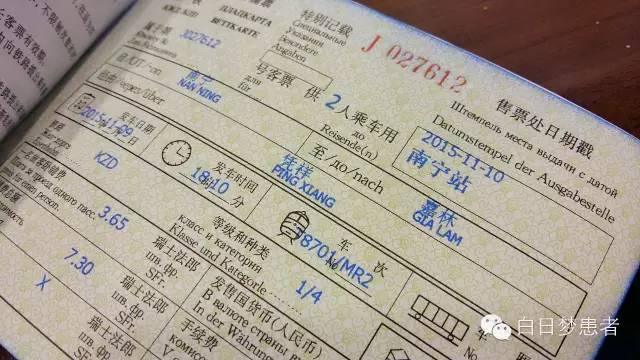 票
ПЛАЦКАРТА
BETTKARTE
特别记载
Специальные
указания
Besondere
Angaben
J 027612
J027612
售票处日期戳
Штемпель места выдачи с датой
Datumstempel der Ausgabestelle
2015-11-10
南宁站
号客票
для
für
供 2 人乘车用
до
Reisende(n)
自/от/von
南宁
NAN NING
至/до/nach
嘉林
GIA LAM
经由/через/über
凭祥
PING XIANG
发车日期
2015-11-09
发车时间
18 时 10 分
车次
№
8701/MR2
等级和种类
Класс и категория
Klasse und Kategorie
1/4
KZD
3.65
瑞士法郎
шв. фр.
SFr.
7.30
瑞士法郎
шв. фр.
SFr.
X
瑞士法郎
发售国货币(人民币)
В валюте страны
In der Währung
手续费
车
No
白日梦患者